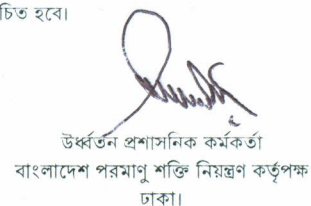 চিত হবে।
ঊর্ধ্বতন প্রশাসনিক কর্মকর্তা
বাংলাদেশ পরমাণু শক্তি নিয়ন্ত্রণ কর্তৃপক্ষ
ঢাকা।